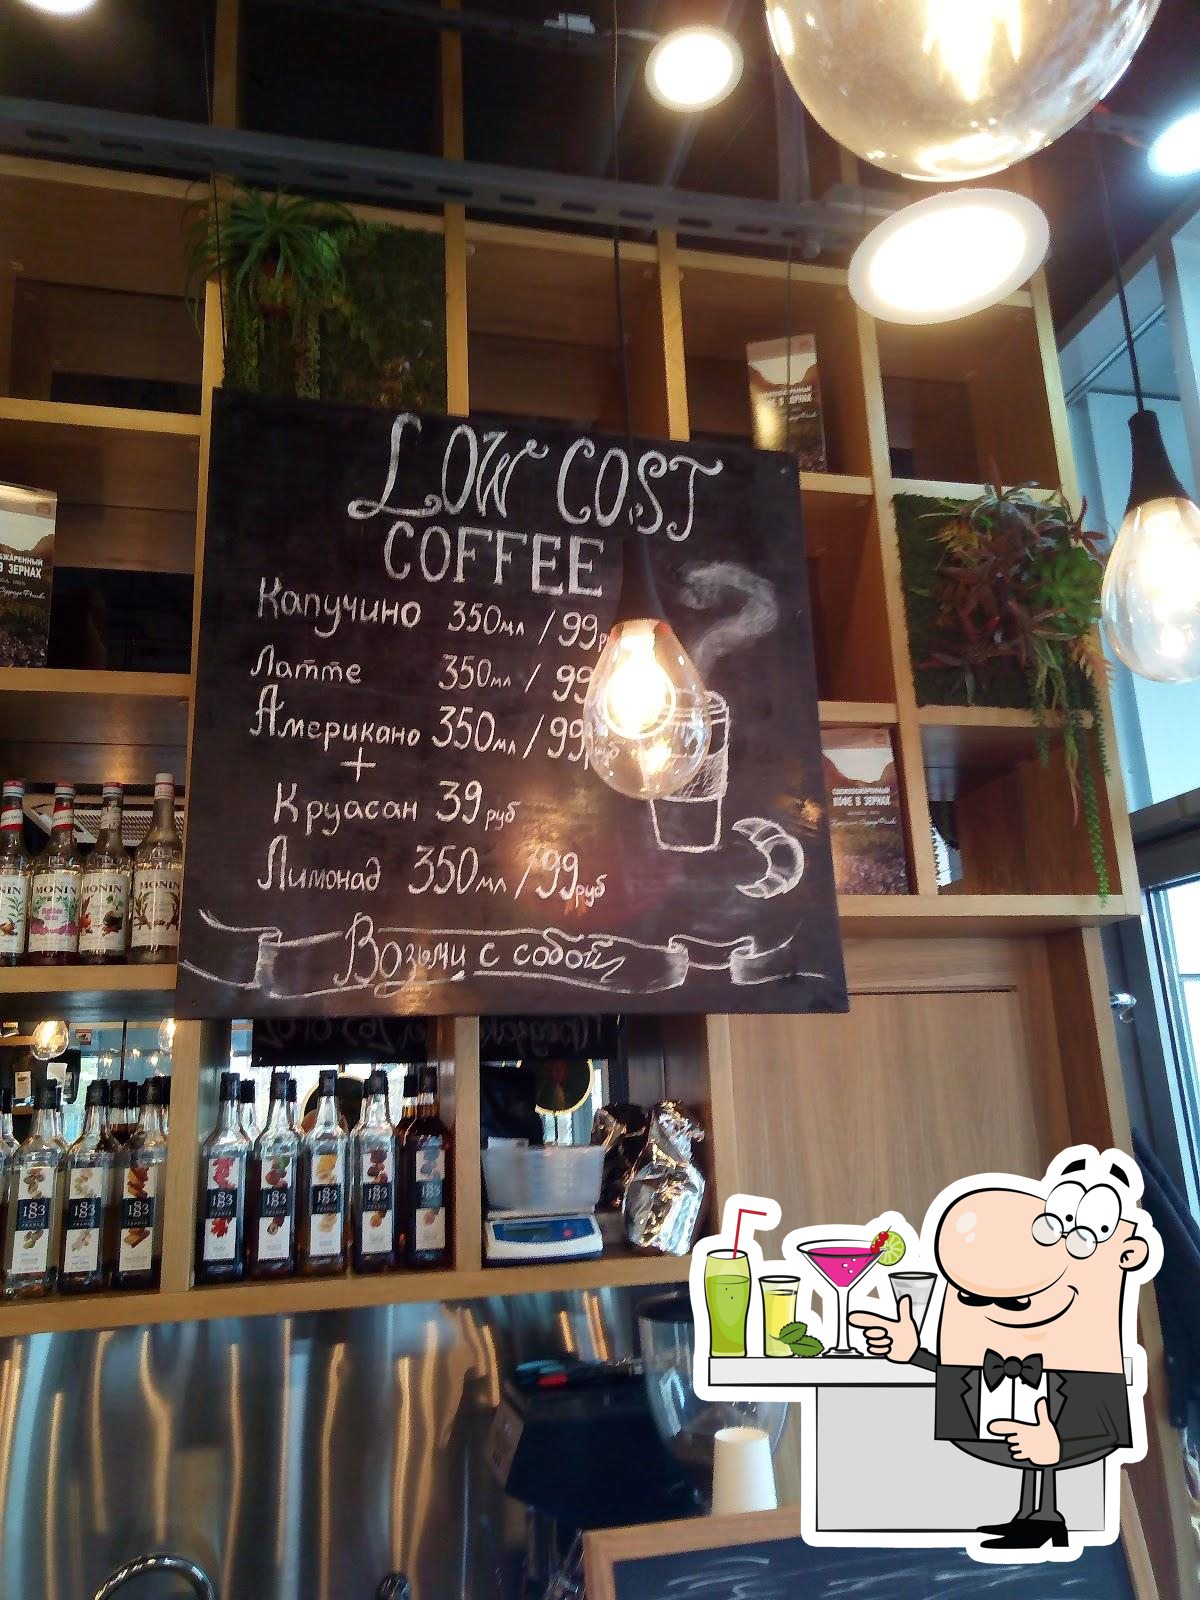 LOW COST
COFFEE
Капучино 350мл / 99р
Латте 350мл / 99
Американо 350мл / 99руб
+
Круасан 39руб
Лимонад 350мл / 99руб
Возьми с собой
КОФЕ В ЗЕРНАХ
В ЗЕРНАХ
MONIN
MONIN
MONIN
1883
1883
1883
1883
1883
1883
1883
1883